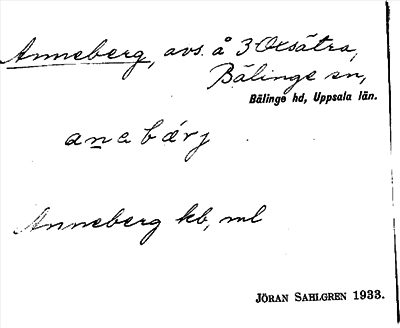 Anneberg, avs. å 3 Oxsätra,
Bälinge sn,
Bälinge hd, Uppsala län.
anabærj
Anneberg kb, ml
JÖRAN SAHLGREN 1933.